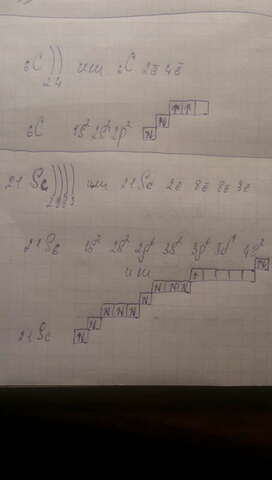 ₆C ))
2 4
или ₆C 2ē 4ē
₆C 1s² 2s² 2p²
₂₁Sc ))))
2 8 8 3
или ₂₁Sc 2ē 8ē 8ē 3ē
₂₁Sc 1s² 2s² 2p⁶ 3s² 3p⁶ 3d¹ 4s²
или
₂₁Sc